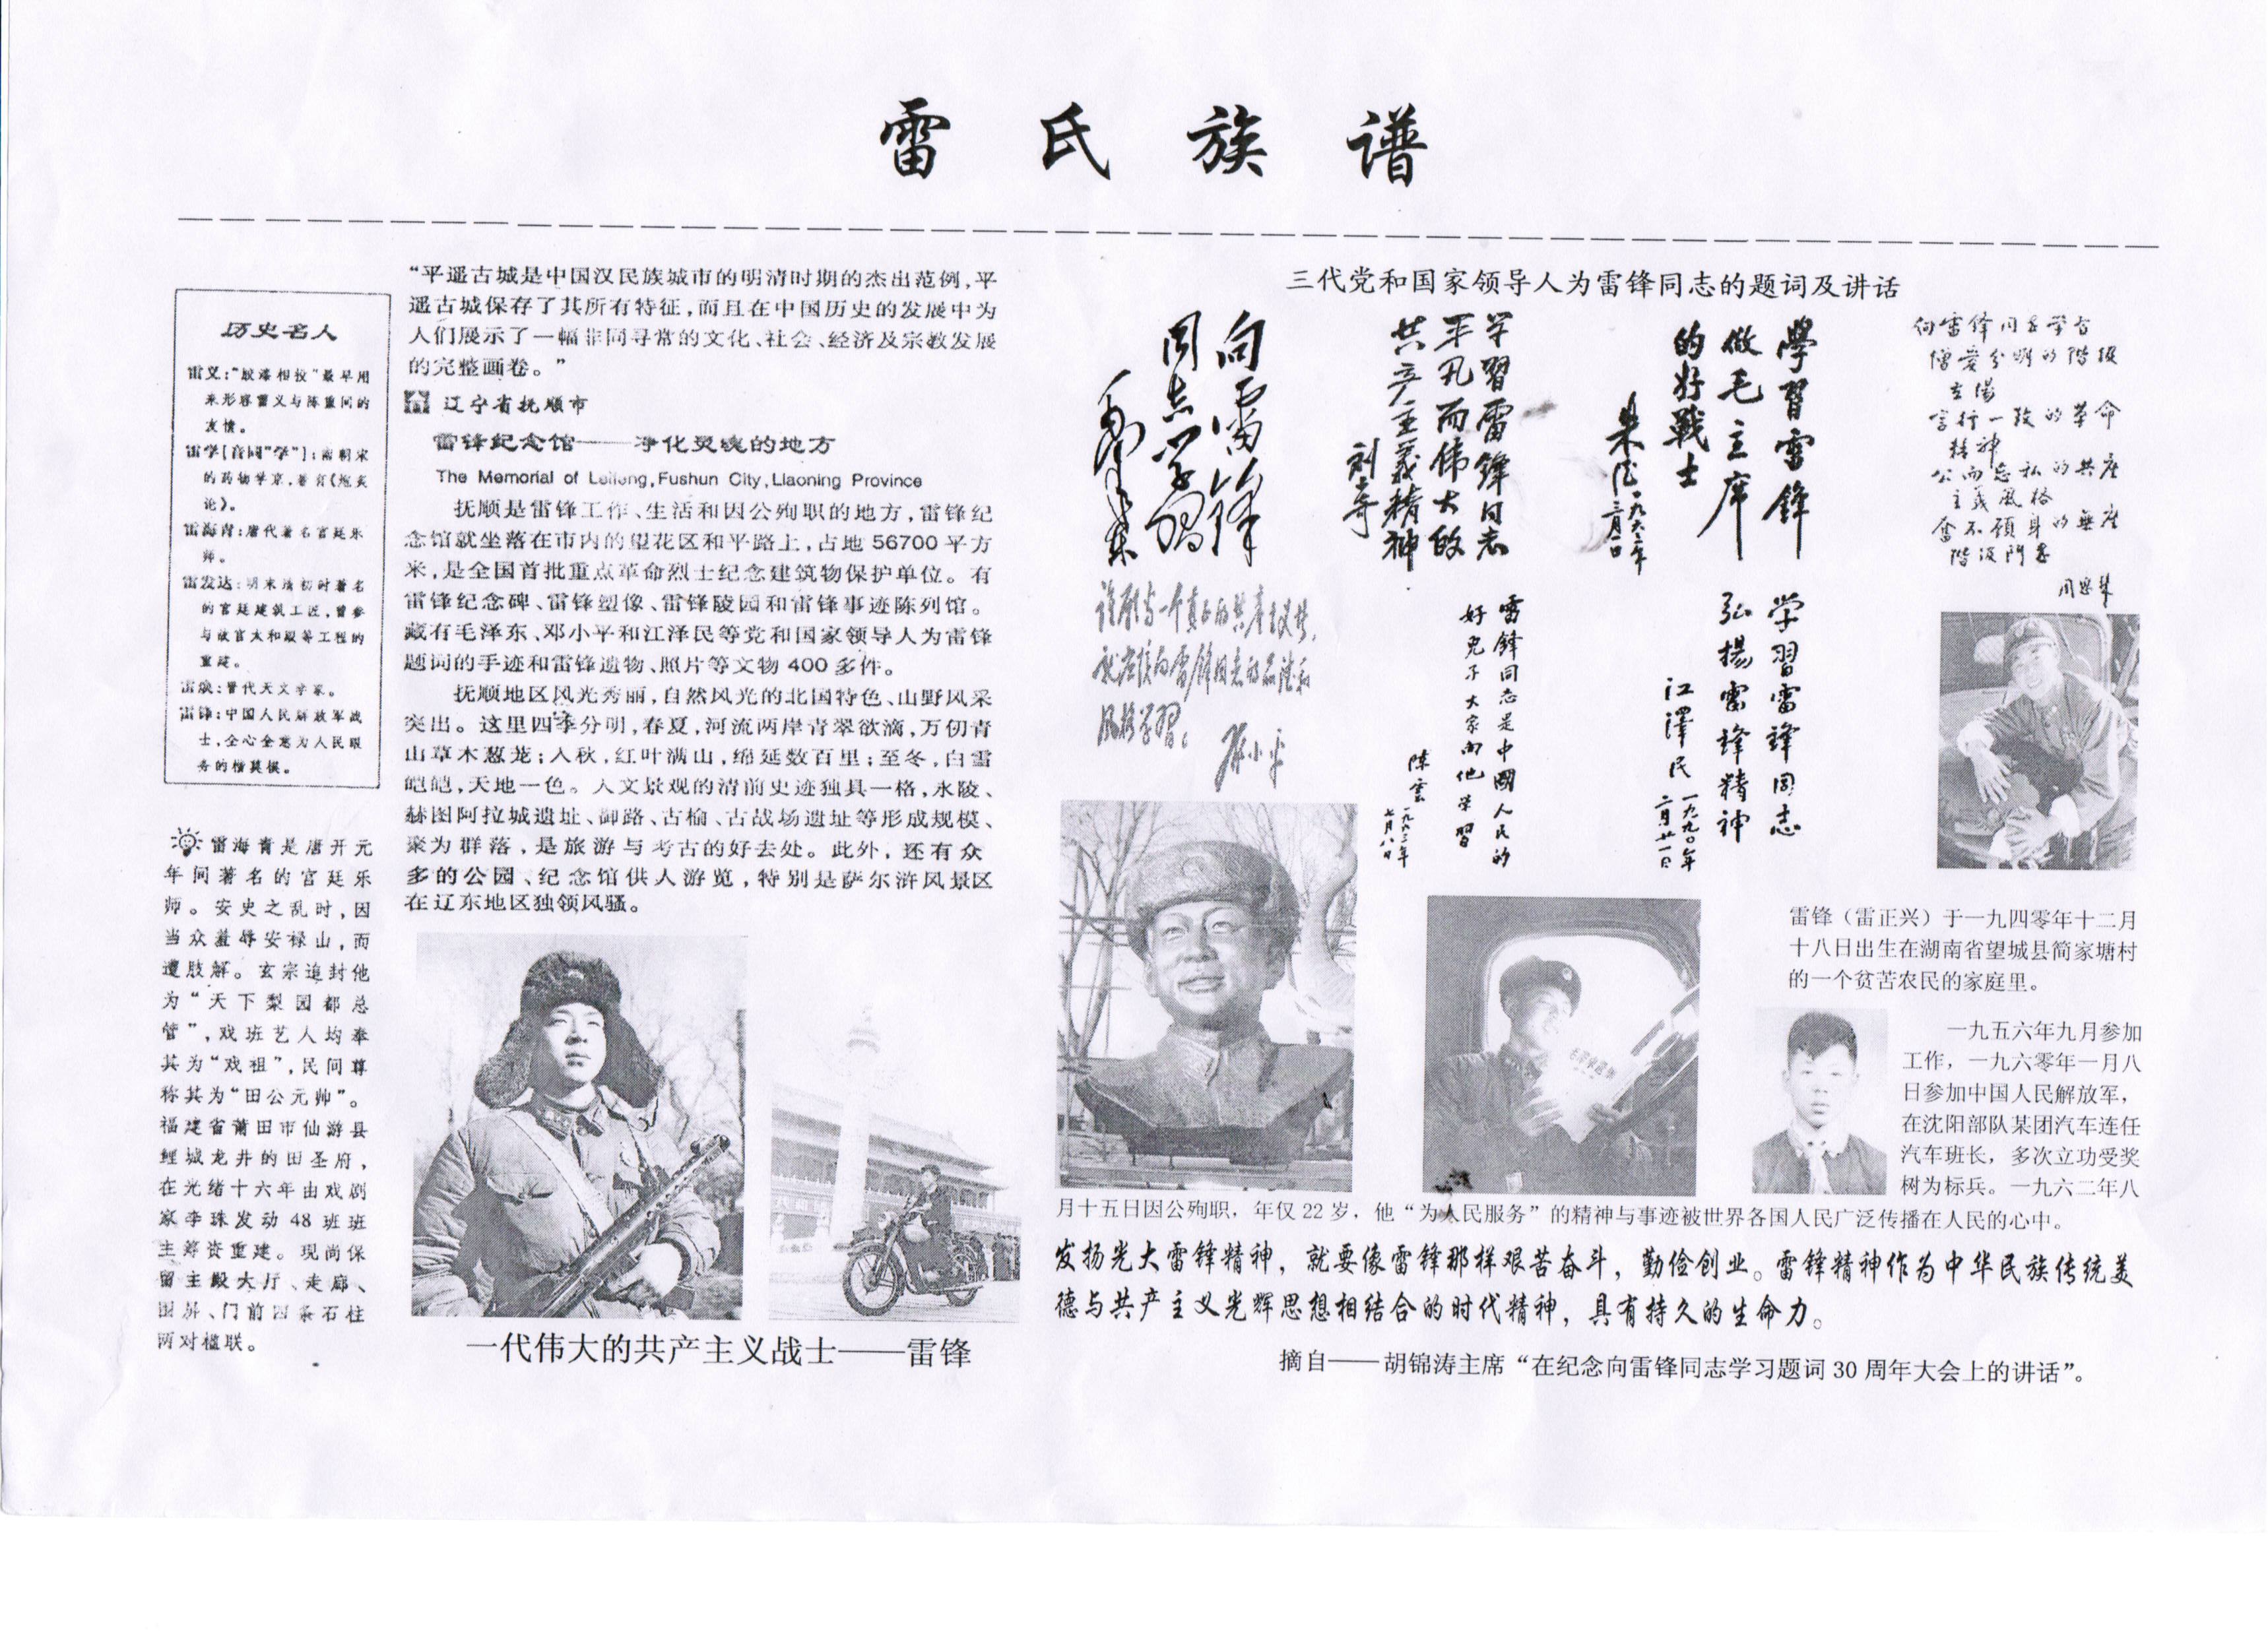 雷氏族谱
历史名人
雷义:“胶漆相投”最早用
来形容雷义与陈重间的
友情。
雷学[音同“学”]:南朝宋
的药物学家,著有《炮炙
论》。
雷海青:唐代著名宫廷乐
师。
雷发达:明末清初时著名
的宫廷建筑工匠,曾参
与故宫太和殿等工程的
重建。
雷焕:晋代天文学家。
雷锋:中国人民解放军战
士,全心全意为人民服
务的楷模。
雷海青是唐开元
年间著名的宫廷乐
师。安史之乱时,因
当众羞辱安禄山,而
遭肢解。玄宗追封他
为“天下梨园都总
管”,戏班艺人均奉
其为“戏祖”,民间尊
称其为“田公元帅”。
福建省莆田市仙游县
鲤城龙井的田圣府,
在光绪十六年由戏剧
家李珠发动48班班
主筹资重建。现尚保
留主殿大厅、走廊、
围屏、门前四条石柱
两对楹联。
“平遥古城是中国汉民族城市的明清时期的杰出范例,平
遥古城保存了其所有特征,而且在中国历史的发展中为
人们展示了一幅非同寻常的文化、社会、经济及宗教发展
的完整画卷。”
辽宁省抚顺市
雷锋纪念馆——净化灵魂的地方
The Memorial of Leifeng,Fushun City,Liaoning Province
抚顺是雷锋工作、生活和因公殉职的地方,雷锋纪
念馆就坐落在市内的望花区和平路上,占地56700平方
米,是全国首批重点革命烈士纪念建筑物保护单位。有
雷锋纪念碑、雷锋塑像、雷锋陵园和雷锋事迹陈列馆。
藏有毛泽东、邓小平和江泽民等党和国家领导人为雷锋
题词的手迹和雷锋遗物、照片等文物400多件。
抚顺地区风光秀丽,自然风光的北国特色、山野风采
突出。这里四季分明,春夏,河流两岸青翠欲滴,万仞青
山草木葱茏;入秋,红叶满山,绵延数百里;至冬,白雪
皑皑,天地一色。人文景观的清前史迹独具一格,永陵、
赫图阿拉城遗址、御路、古榆、古战场遗址等形成规模、
聚为群落,是旅游与考古的好去处。此外,还有众
多的公园、纪念馆供人游览,特别是萨尔浒风景区
在辽东地区独领风骚。
一代伟大的共产主义战士——雷锋
三代党和国家领导人为雷锋同志的题词及讲话
向雷锋
同志学习
毛泽东
学習雷锋同志
平凡而伟大的
共产主義精神
刘少奇
學習雷鋒
做毛主席
的好戰士
朱德
一九六三年
二月
向雷锋同志学習
憎爱分明的階级
立場
言行一致的革命
精神
公而忘私的共产
主義風格
奋不顾身的無产
階级鬥志
周恩來
谁愿当一个真正的共产主义者,
就应该向雷锋同志的品德和
风格学習。
邓小平
雷鋒同志是中國人民的
好兒子大家向他学習
陈雲
一九六三年
七月八日
学習雷锋同志
弘揚雷锋精神
江澤民
一九九〇年
二月廿一日
毛泽东选集
雷锋(雷正兴)于一九四零年十二月
十八日出生在湖南省望城县简家塘村
的一个贫苦农民的家庭里。
一九五六年九月参加
工作,一九六零年一月八
日参加中国人民解放军,
在沈阳部队某团汽车连任
汽车班长,多次立功受奖
树为标兵。一九六二年八
月十五日因公殉职,年仅22岁,他“为人民服务”的精神与事迹被世界各国人民广泛传播在人民的心中。
发扬光大雷锋精神,就要像雷锋那样艰苦奋斗,勤俭创业。雷锋精神作为中华民族传统美
德与共产主义光辉思想相结合的时代精神,具有持久的生命力。
摘自——胡锦涛主席“在纪念向雷锋同志学习题词30周年大会上的讲话”。